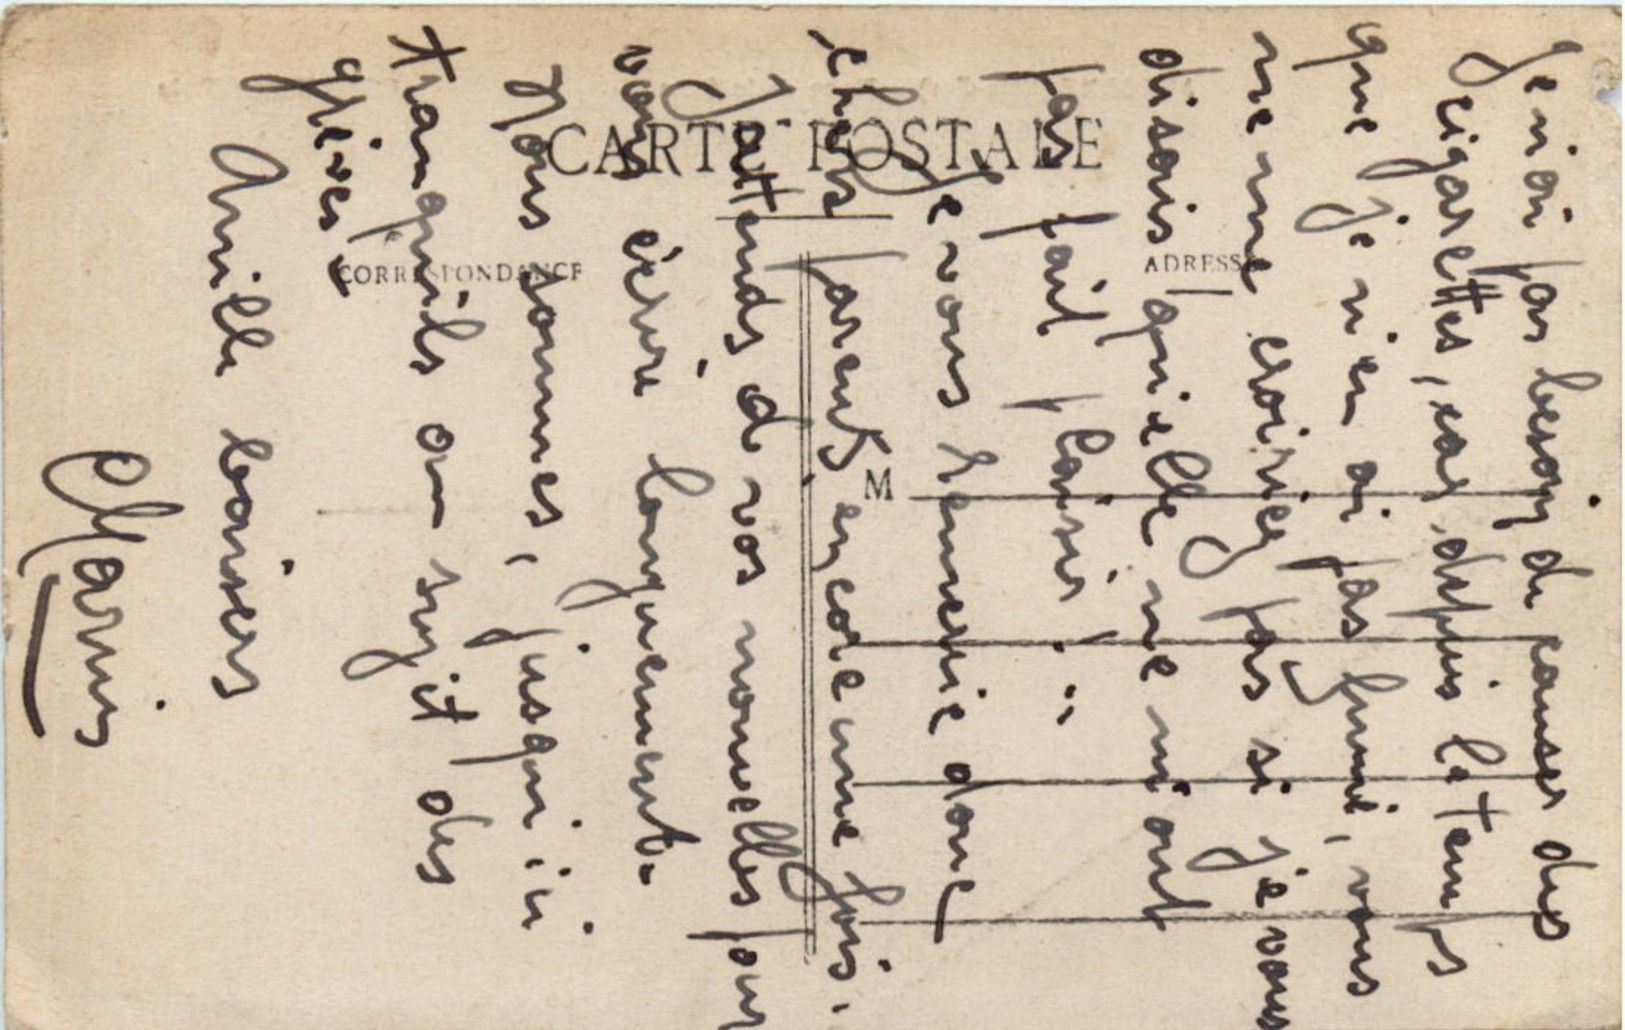 CARTE POSTALE
CORRESPONDANCE
ADRESSE
M
Je n'ai pas besoin de causer des
cigarettes, car depuis le temps
que je n'en ai pas fumé, vous
ne me croiriez pas si je vous
disais qu'elle ne m'ont
pas fait plaisir.
Je vous remercie donc
chers parents encore une fois.
J'attends de vos nouvelles pour
vous écrire longuement.
Nous sommes, jusqu'ici
tranquils au sujet des
grèves.
Amille baisers
Marius